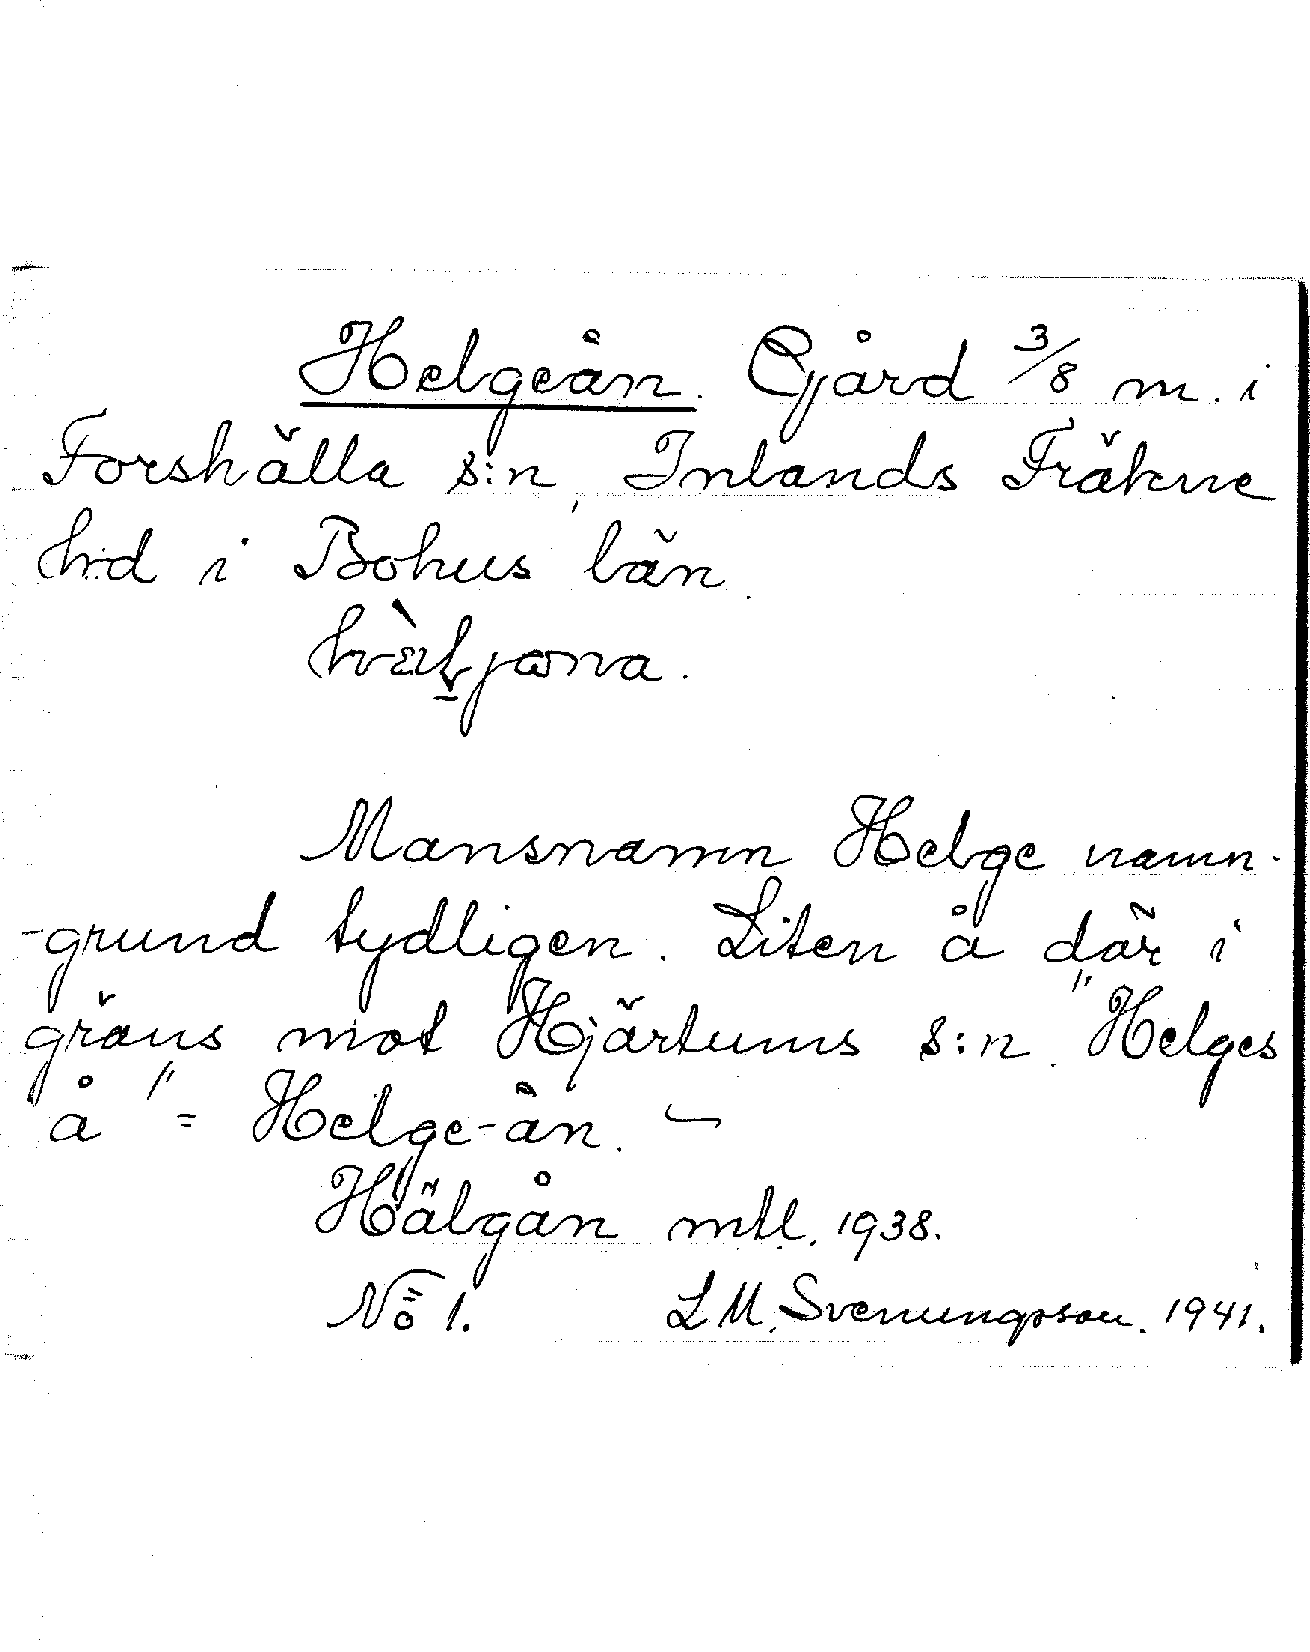 Helgeån. Gård 3/8 m. i
Forshälla s:n, Inlands Fräkne
hrd i Bohus län.
Mansnamn Helge namn-
-grund tydligen. Liten å där i
gräns mot Hjärtums s:n. "Helges
å" = Helge-ån. –
Hälgån mtl. 1938.
No 1. L M. Svenungsson. 1941.